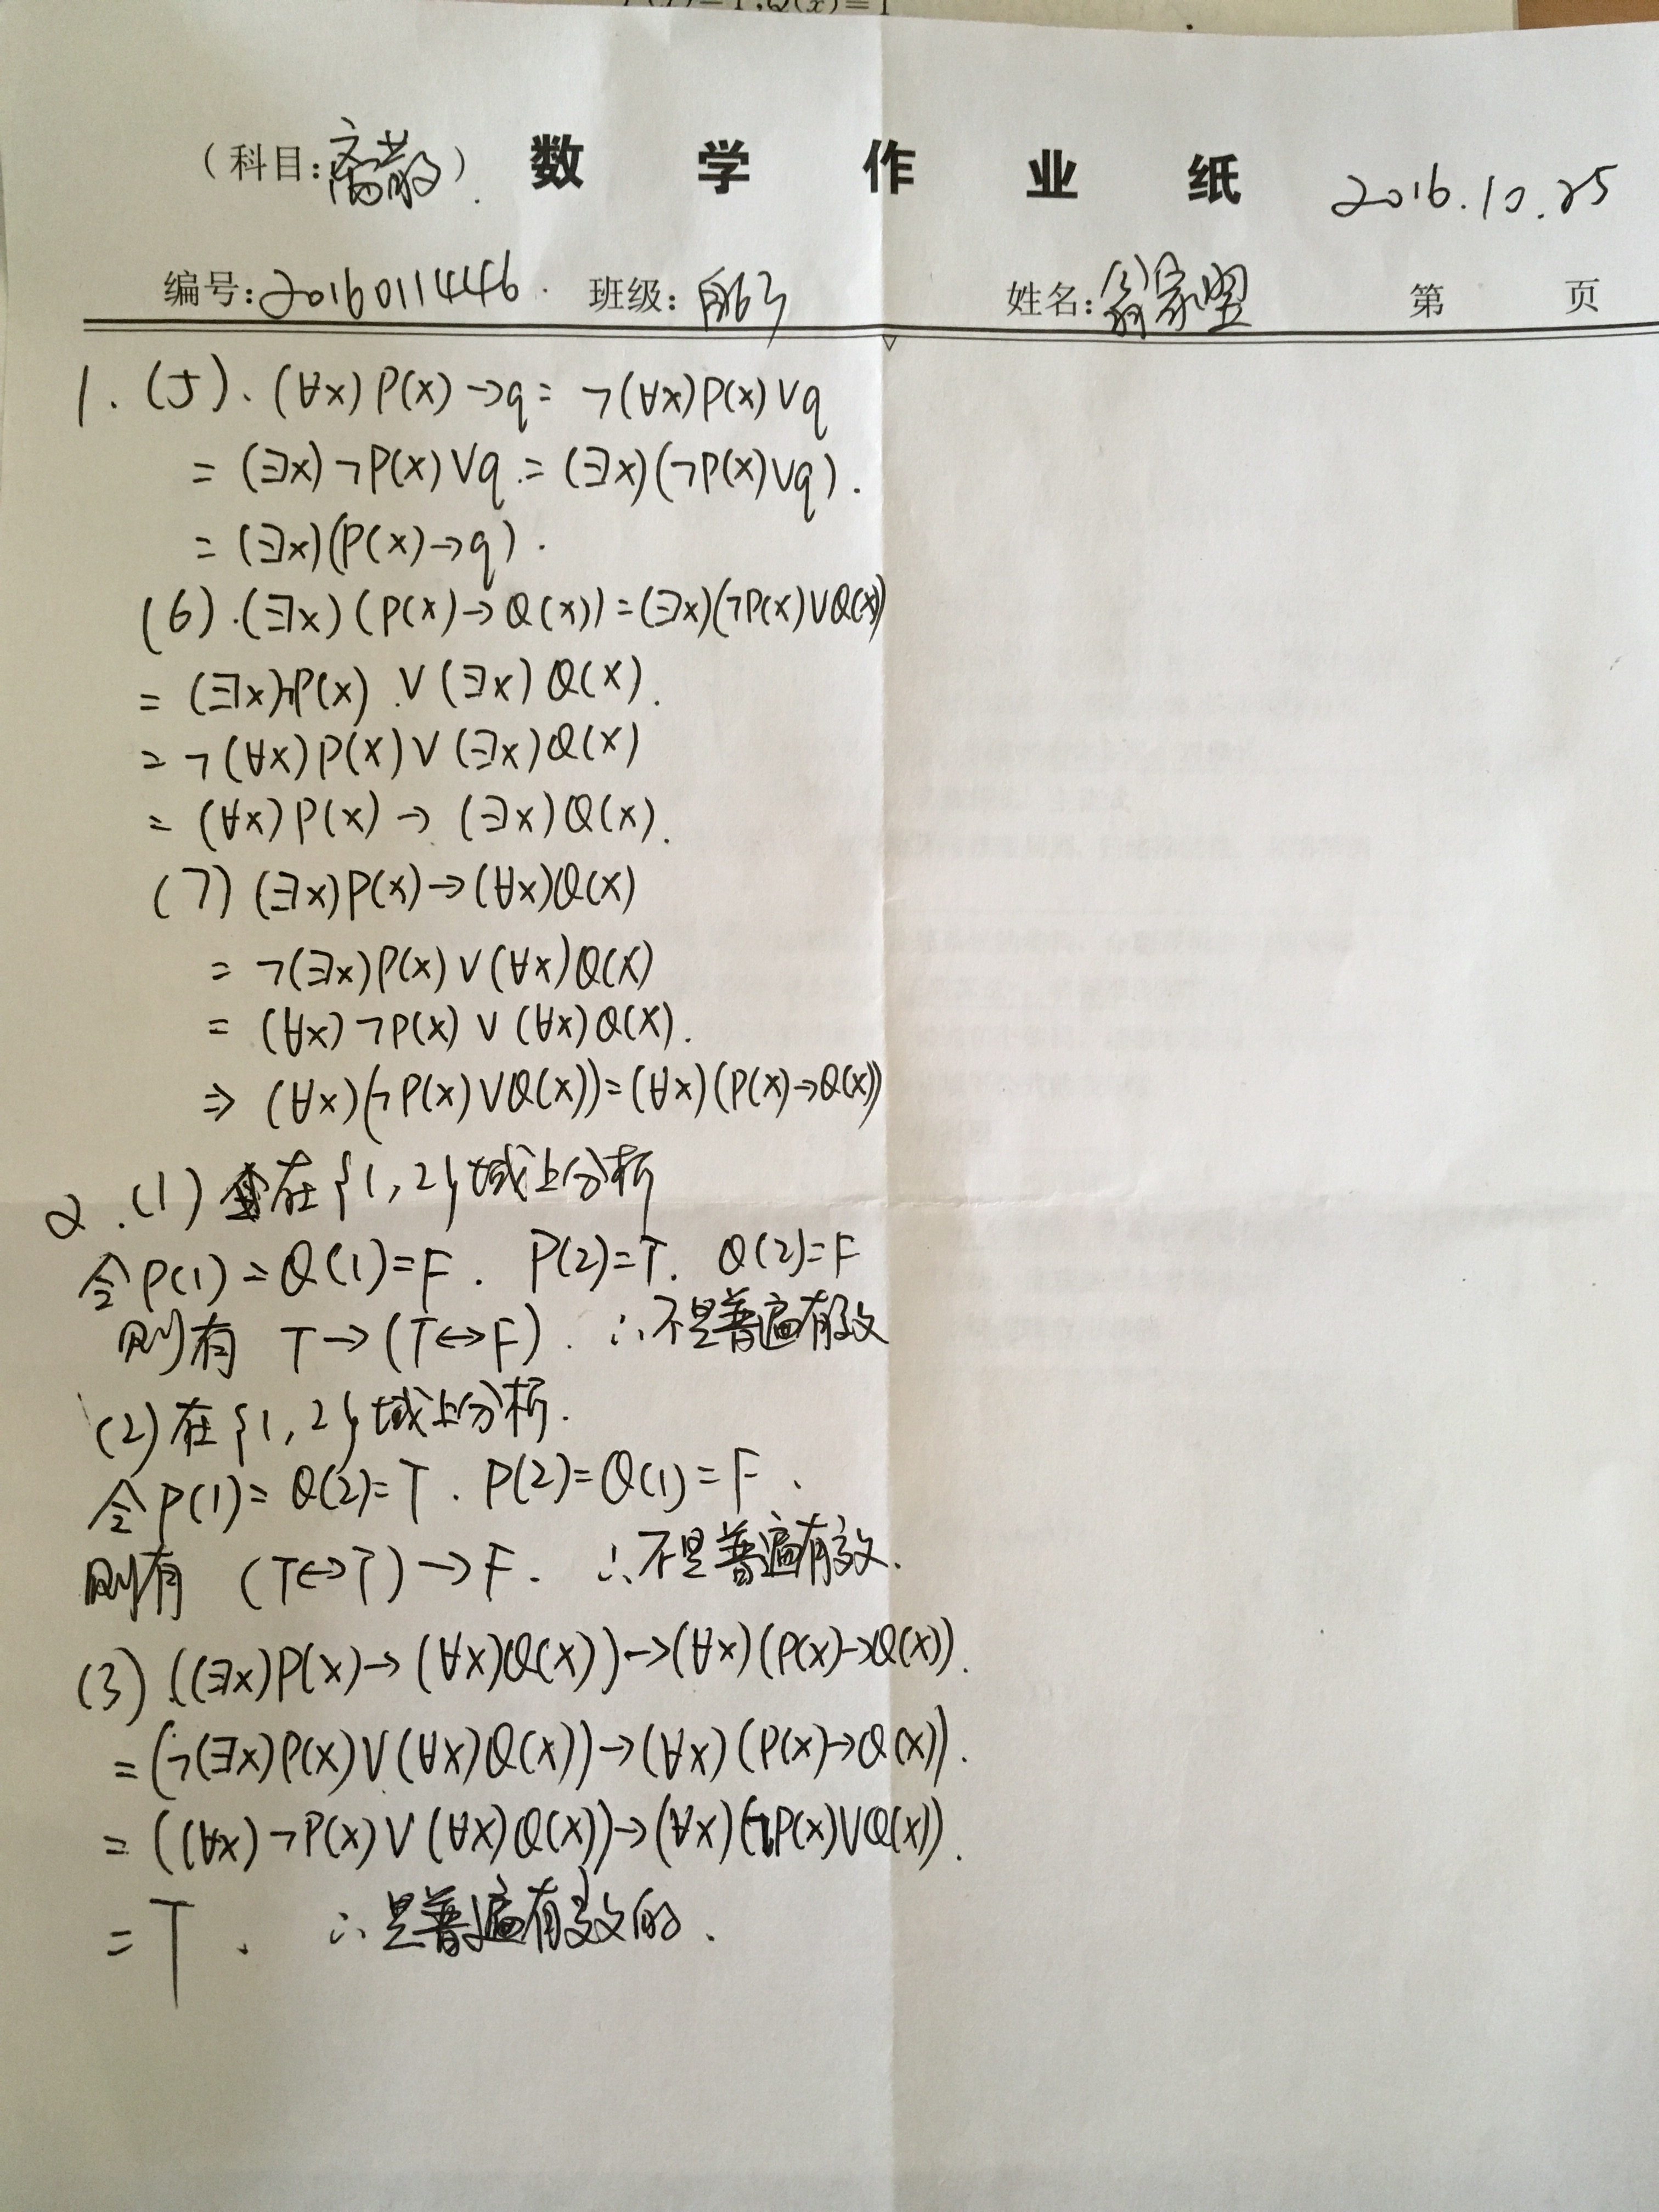 (科目:离散). 数 学 作 业 纸 2016.10.25
编号:2016011446. 班级: 自63 姓名:翁家翌 第 页
1. (5). (∀x)P(x)→q = ¬(∀x)P(x)∨q
= (∃x)¬P(x)∨q = (∃x)(¬P(x)∨q).
= (∃x)(P(x)→q).
(6).(∃x)(P(x)→Q(x))=(∃x)(¬P(x)∨Q(x))
= (∃x)¬P(x) ∨(∃x)Q(x).
= ¬(∀x)P(x)∨(∃x)Q(x)
= (∀x)P(x)→ (∃x)Q(x).
(7) (∃x)P(x)→(∀x)Q(x)
= ¬(∃x)P(x)∨(∀x)Q(x)
= (∀x)¬P(x)∨(∀x)Q(x).
⇒ (∀x)(¬P(x)∨Q(x))=(∀x)(P(x)→Q(x))
2.(1) 在{1,2}域上分析
令P(1)=Q(1)=F. P(2)=T. Q(2)=F
则有 T→(T↔F). ∴不是普遍有效
(2)在{1,2}域上分析.
令P(1)=Q(2)=T. P(2)=Q(1)=F.
则有 (T↔T)→F. ∴不是普遍有效.
(3) ((∃x)P(x)→(∀x)Q(x))→(∀x)(P(x)→Q(x)).
=(¬(∃x)P(x)∨(∀x)Q(x))→(∀x)(P(x)→Q(x)).
= ((∀x)¬P(x)∨(∀x)Q(x))→(∀x)(¬P(x)∨Q(x)).
= T. ∴是普遍有效的.